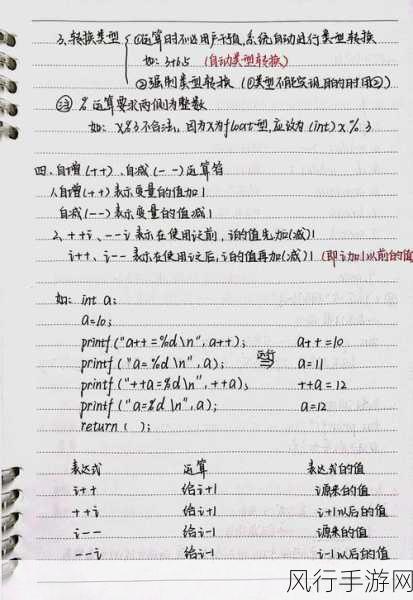 3、转换类型 ①运算时不必用户干预,系统自动进行类型转换
如: 3+6.5 (自动类型转换)
②强制类型转换 (①类型不能实现目的时用②)
注 % 运算要求两侧为整数
如: x%3不合法, 因为x为float型,应改为 (int) x % 3
四、自增(++)、自减(--)运算符
1、自增(++)表示变量的值加1
自减(--)表示变量的值减1
2、++i、--i 表示在使用i之前, i的值先加(减)1
i++、i-- 表示在使用i之后,i的值再加(减)1 (即i加1以前的值
如: int a;
a=10;
printf("a++=%d\n", a++); 运行 a++=10
printf("a=%d\n", a); ⇒ a=11
printf("++a=%d\n", ++a); ++a=12
printf("a=%d\n", a); a=12
return ( );
表达式 运算 表达式的值
i++ 给i+1 i原来的值
++i 给i+1 i+1以后的值
i-- 给i-1 i原来的值
--i 给i-1 i-1以后的值
风行手游网